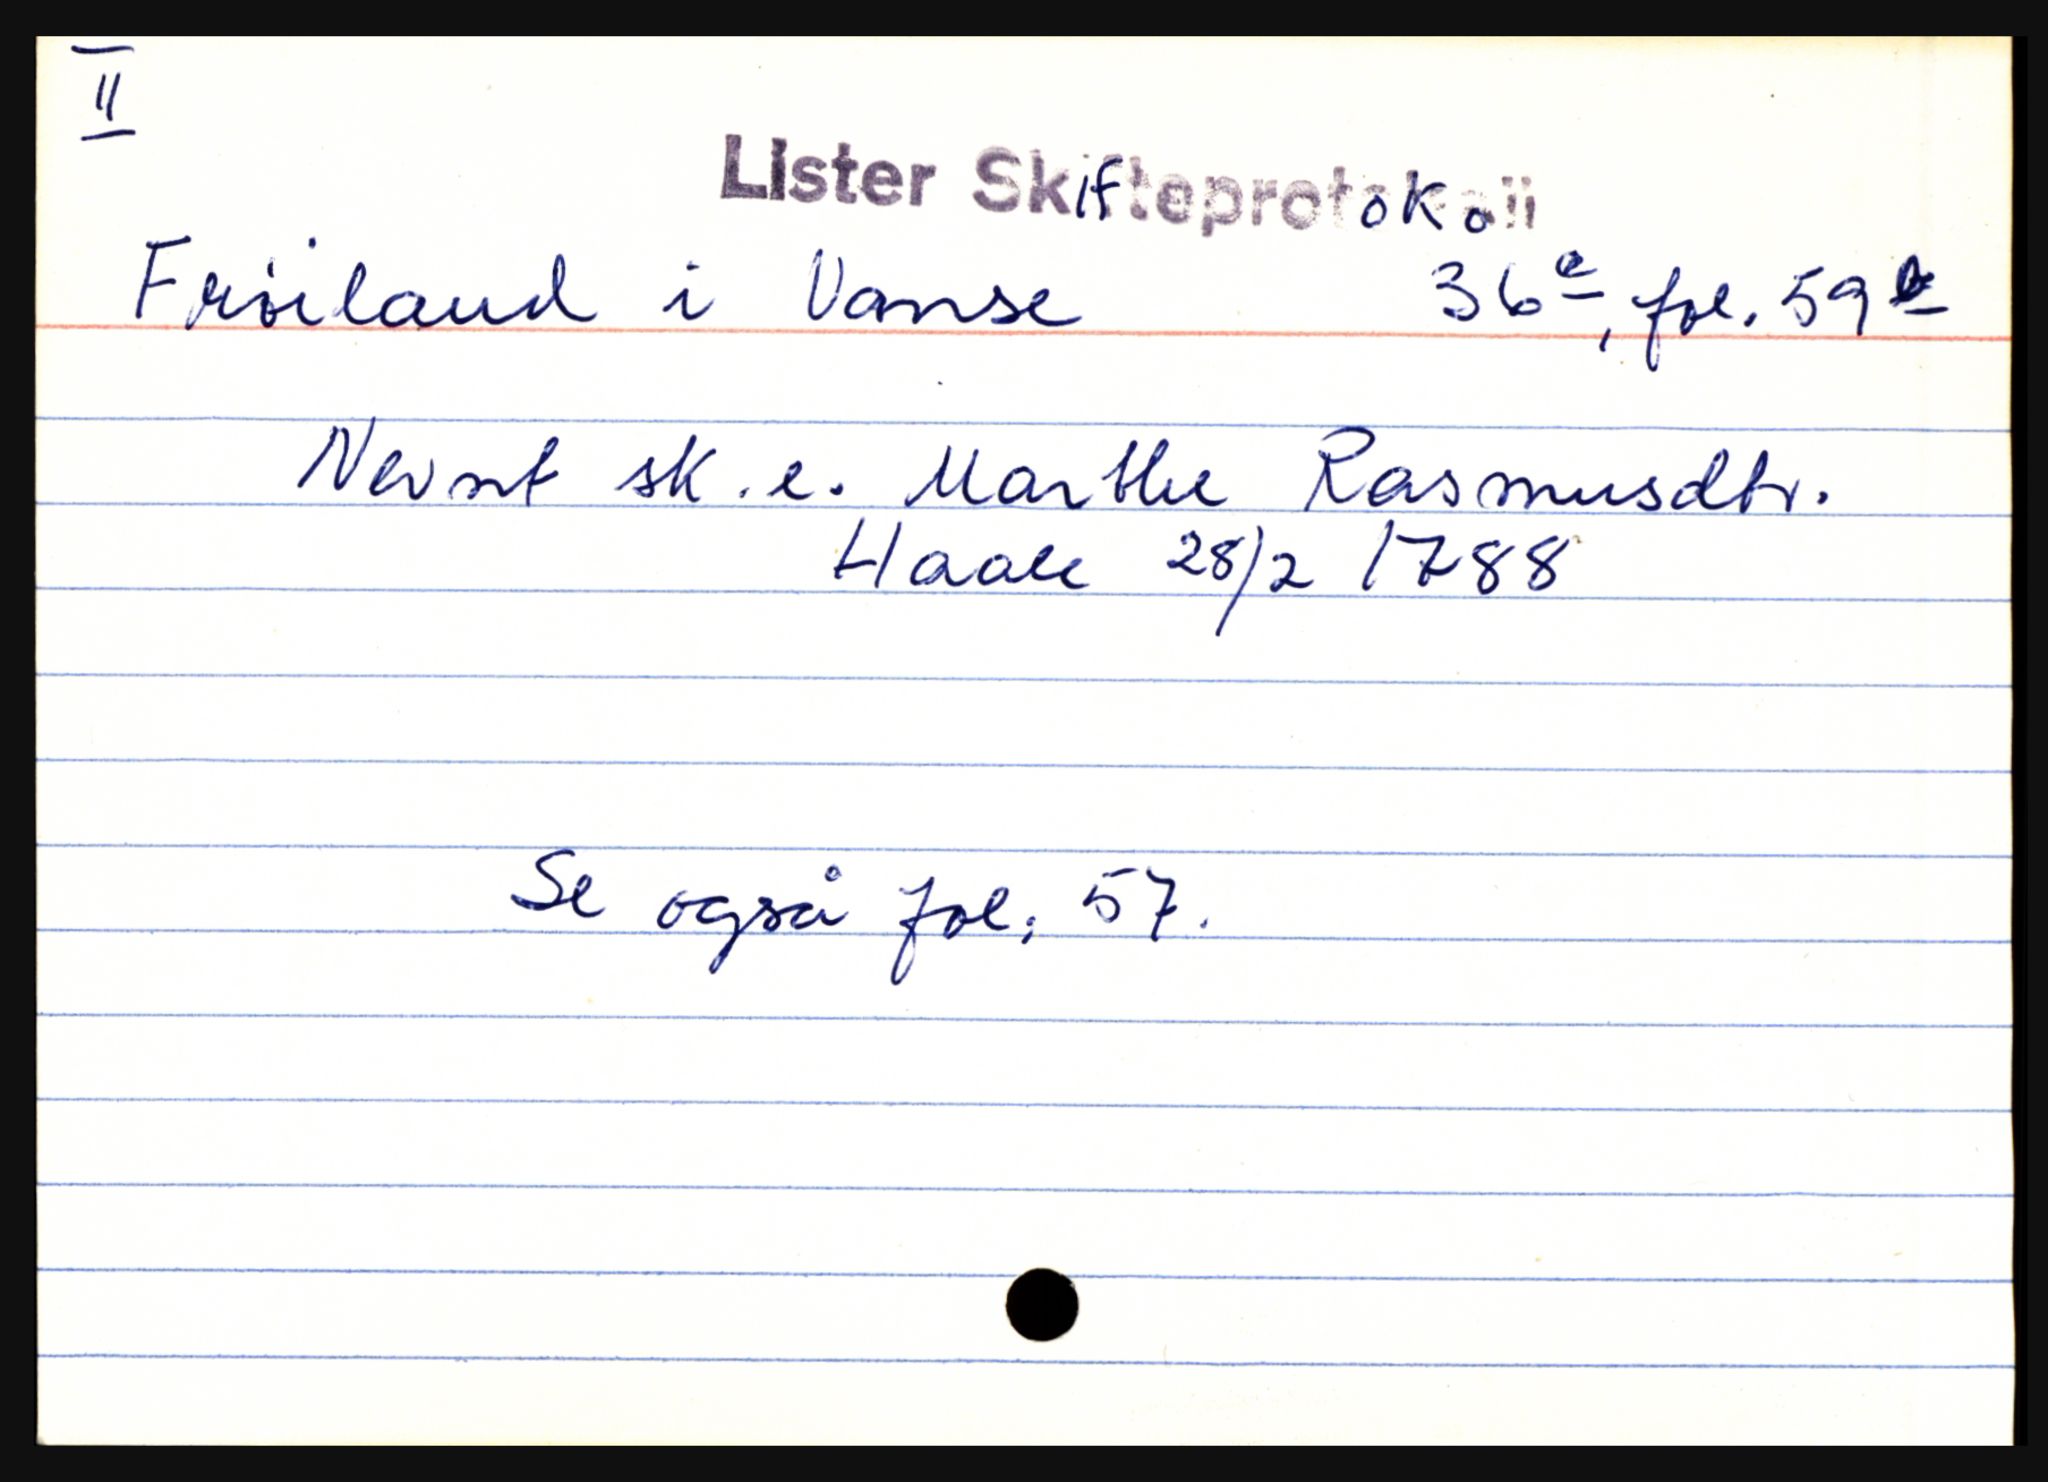 II
Lister Skifteprotokoll
Frøiland i Vanse 36e, fol. 59b
Nevnt sk. e. Marthe Rasmusdtr.
Haale 28/2 1788
Se også fol. 57.